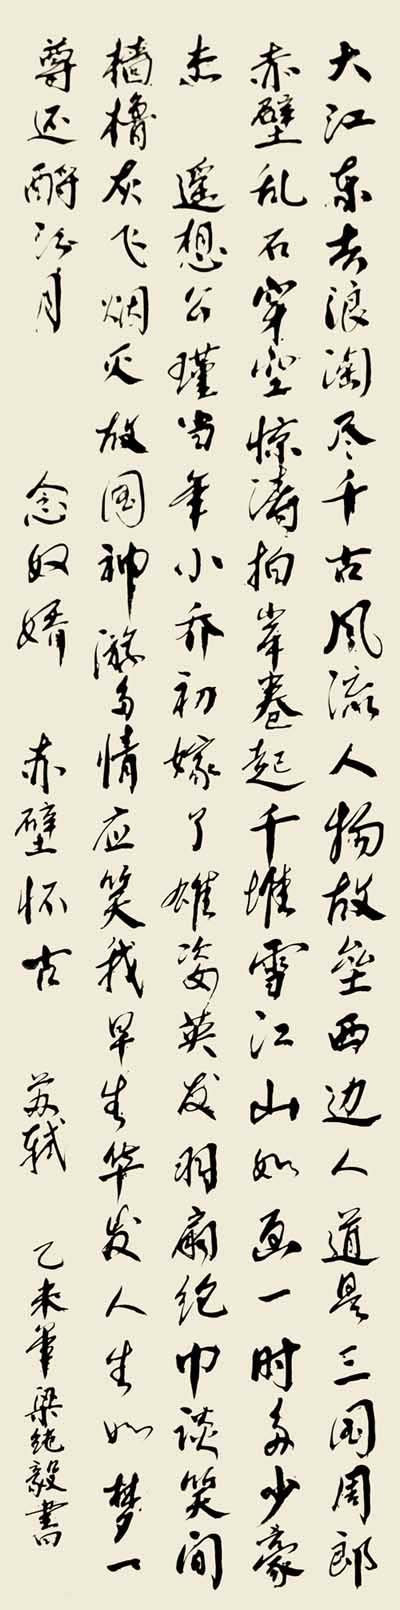 大江东去浪淘尽千古风流人物故垒西边人道是三国周郎
赤壁乱石穿空惊涛拍岸卷起千堆雪江山如画一时多少豪
杰 遥想公瑾当年小乔初嫁了雄姿英发羽扇纶巾谈笑间
樯橹灰飞烟灭故国神游多情应笑我早生华发人生如梦一
尊还酹江月 念奴娇 赤壁怀古 苏轼 乙未 梁纯毅书